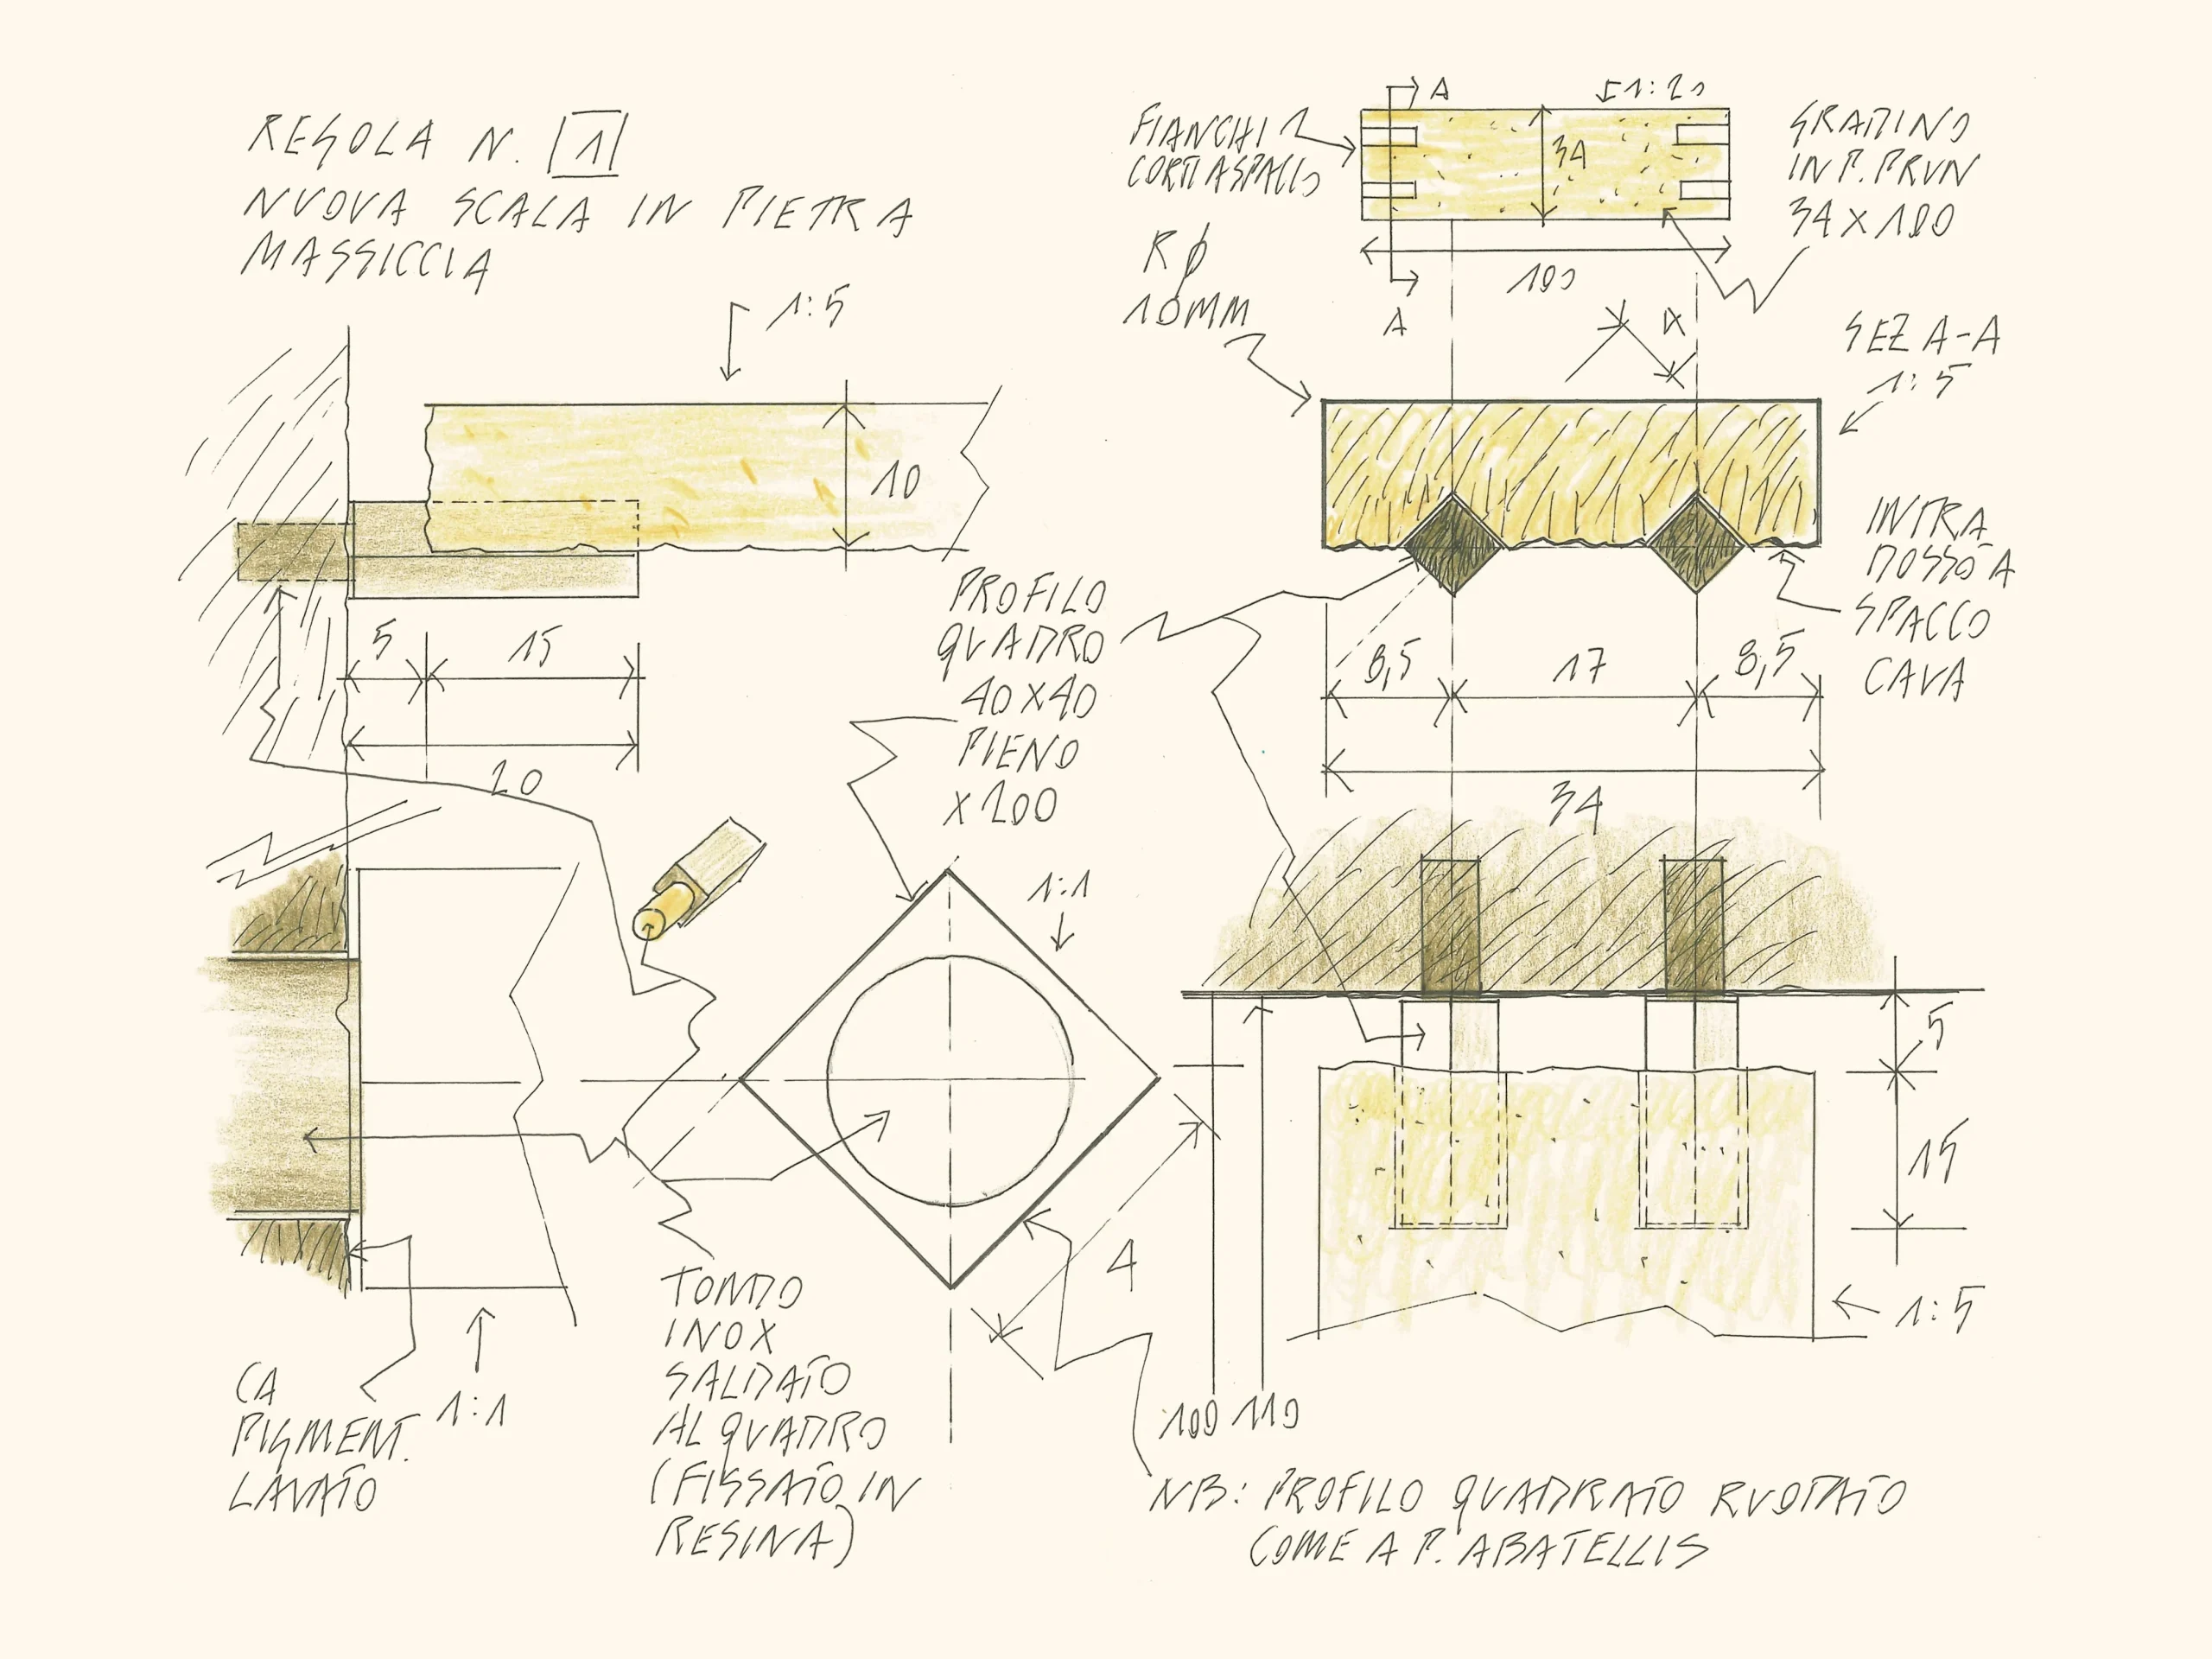 REGOLA N. 1
NUOVA SCALA IN PIETRA
MASSICCIA
1:5
10
5
15
20
FIANCHI
CORTI A SPACCO
A
1:20
34
100
A
GRADINO
IN P. PRUN
34 X 100
R Ø
10 MM
4
SEZ A-A
1:5
INTRA
DOSSO A
SPACCO
CAVA
8,5
17
8,5
34
PROFILO
QUADRO
40 X 40
PIENO
X 200
1:1
4
5
15
1:5
100 110
CA
PIGMENT.
LAVATO
1:1
TONDO
INOX
SALDATO
AL QUADRO
(FISSATO IN
RESINA)
NB: PROFILO QUADRATO RUOTATO
COME A P. ABATELLIS